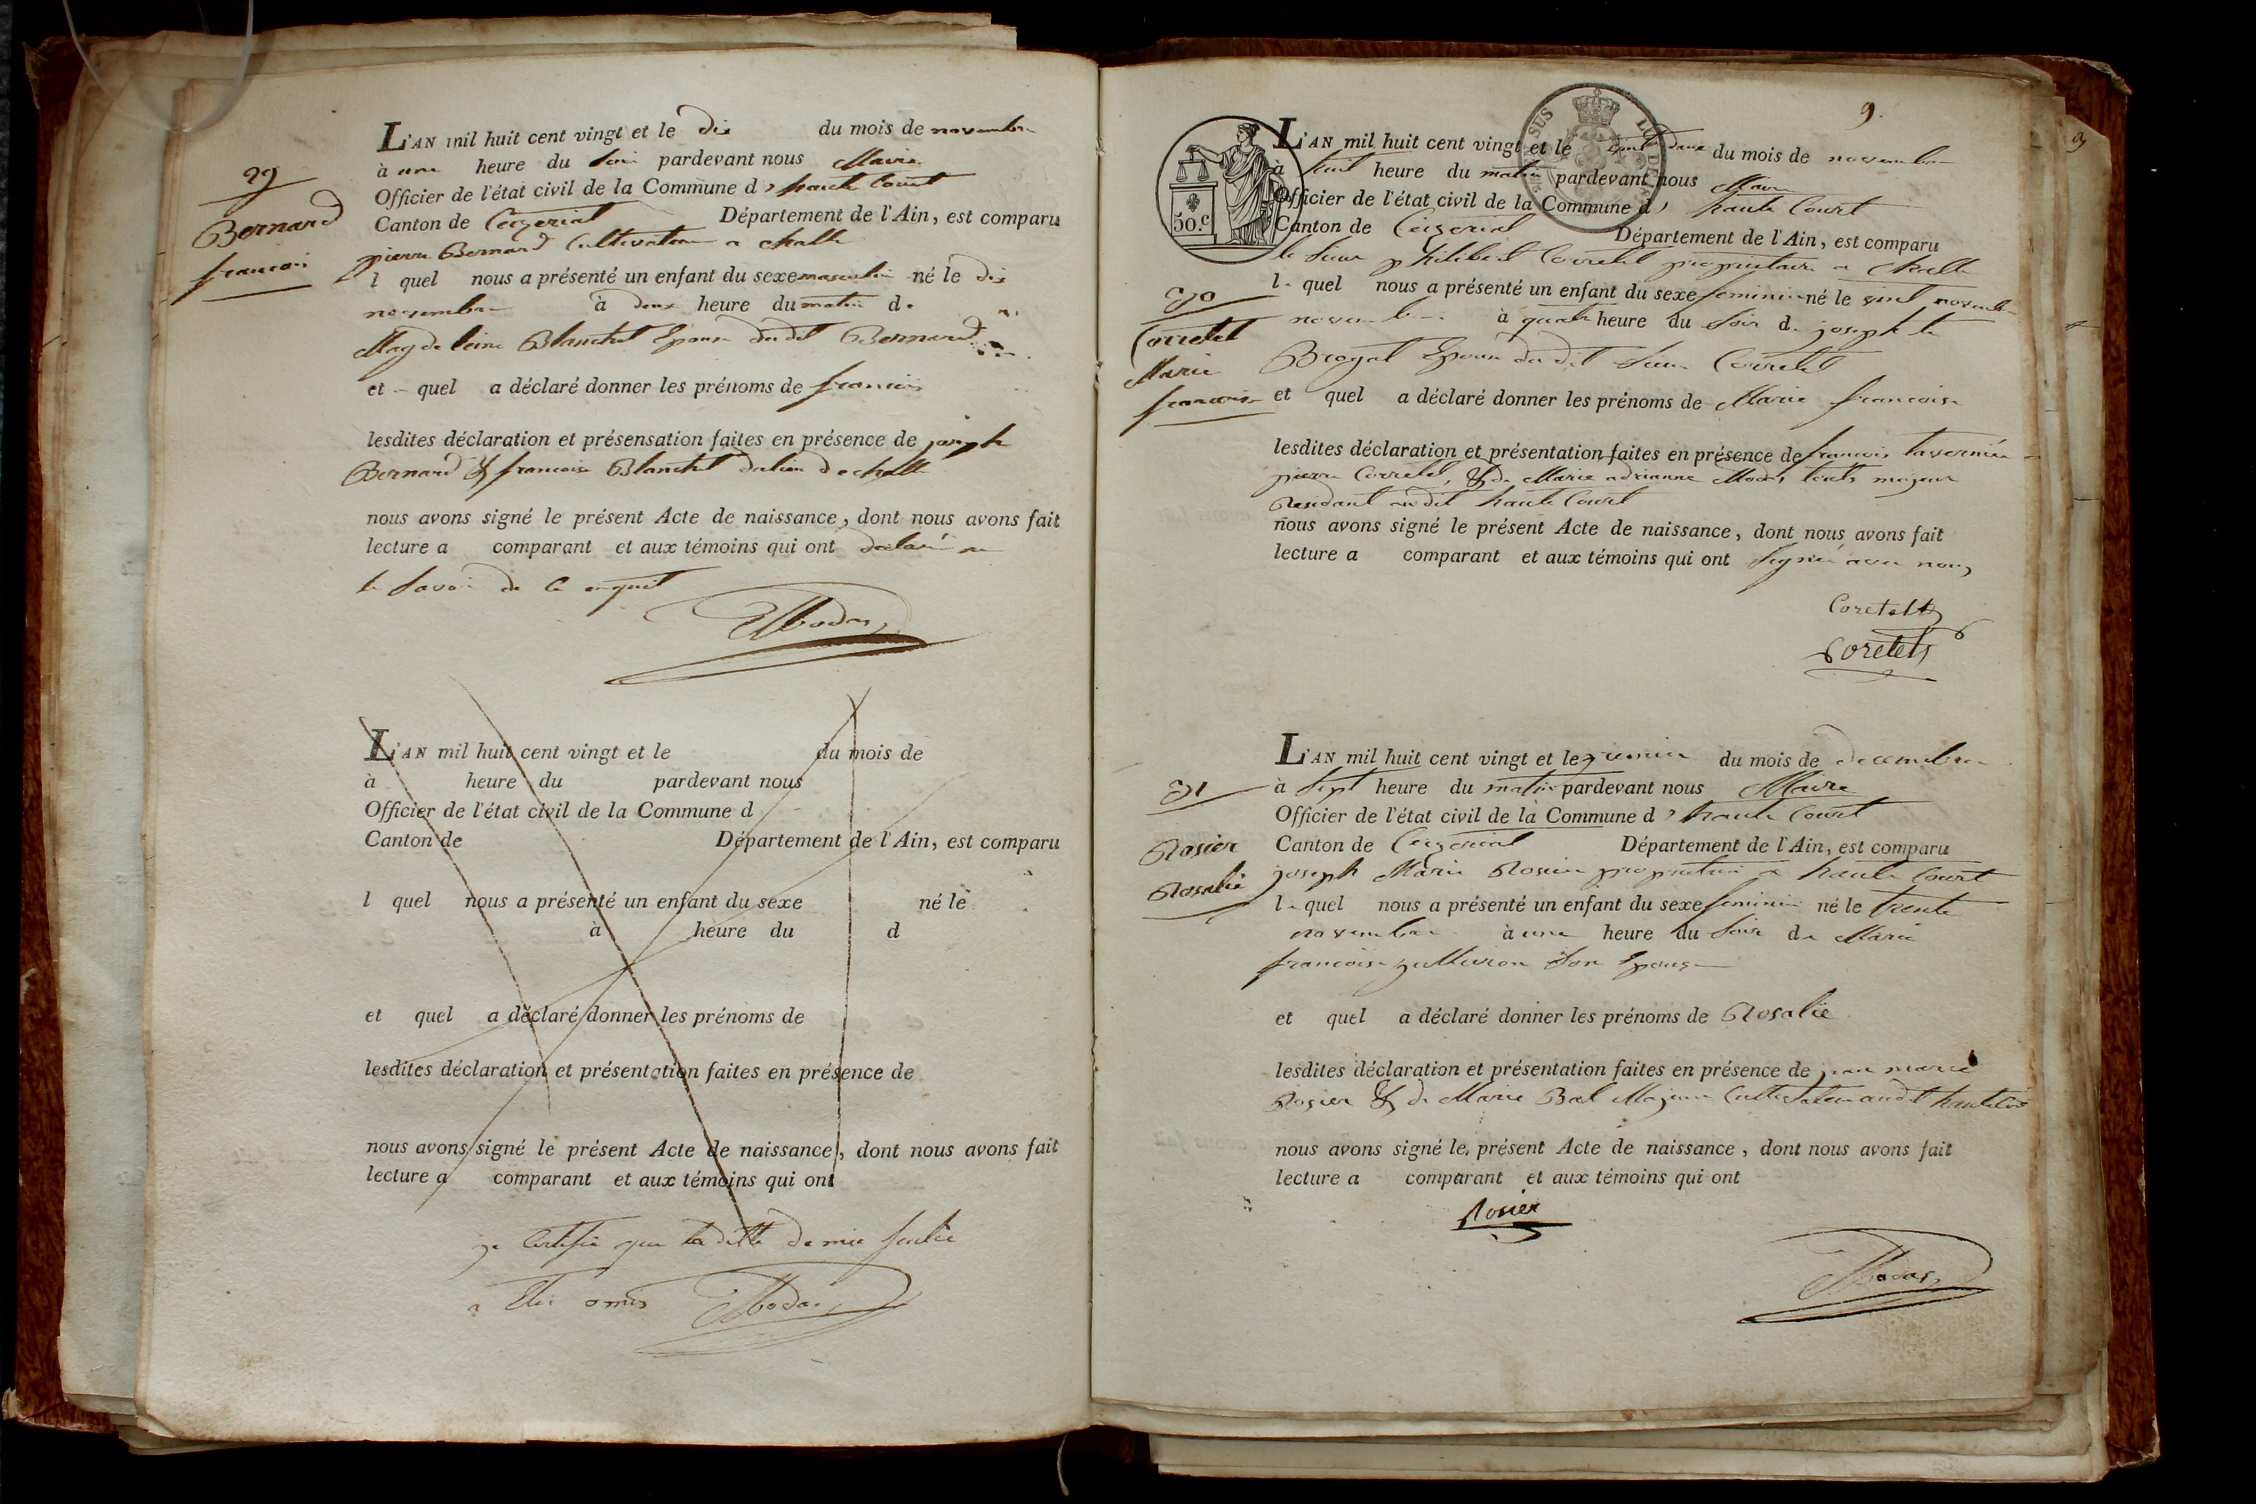 29
Bernard
francois
L'AN mil huit cent vingt et le dix du mois de novembre
à une heure du soir pardevant nous Maire
Officier de l'état civil de la Commune d, haute Court
Canton de Ceyzeriat Département de l'Ain, est comparu
pierre Bernard Cultivateur a challe
l quel nous a présenté un enfant du sexe masculin né le dix
novembre à deux heure du matin de
Magdeleine Blanchet Epouse dudit Bernard
et quel a déclaré donner les prénoms de francois
lesdites déclaration et présensation faites en présence de joseph
Bernard & francoise Blanchet du lieu de challe
nous avons signé le présent Acte de naissance, dont nous avons fait
lecture a comparant et aux témoins qui ont déclaré ne
le savoir de ce enquit
Modas
L'AN mil huit cent vingt et le du mois de
à heure du pardevant nous
Officier de l'état civil de la Commune d
Canton de Département de l'Ain, est comparu
l quel nous a présenté un enfant du sexe né le
à heure du d
et quel a déclaré donner les prénoms de
lesdites déclaration et présentation faites en présence de
nous avons signé le présent Acte de naissance, dont nous avons fait
lecture a comparant et aux témoins qui ont
je Certifie que laditte demie feulie
a Eté omis Modas
9.
50.c
L'AN mil huit cent vingt et le vint deux du mois de novembre
à huit heure du matin pardevant nous Maire
Officier de l'état civil de la Commune d, haute Court
Canton de Ceyzeriat Département de l'Ain, est comparu
le sieur philibert Corretet proprietaire a Challe
30
Corretet
Marie
francoise
l- quel nous a présenté un enfant du sexe feminin né le vint novembre
novembre à quatre heure du soir de josephte
Brogat Epouse du dit sieur Corretet
et quel a déclaré donner les prénoms de Marie francoise
lesdites déclaration et présentation faites en présence de francois tavernier
pierre Corretet, & de Marie adrianne Modas touts majeur
Residant au dit haute Court
nous avons signé le présent Acte de naissance, dont nous avons fait
lecture a comparant et aux témoins qui ont signé avec nous
Coretet
Coretet
31
Rosier
Rosalie
L'AN mil huit cent vingt et le premier du mois de decembre
à sept heure du matin pardevant nous Maire
Officier de l'état civil de la Commune d, haute Court
Canton de Ceyzeriat Département de l'Ain, est comparu
joseph Marie Rosier proprietaire a haute Court
l- quel nous a présenté un enfant du sexe feminin né le trente
novembre à une heure du soir de Marie
francoise son Epouse
et quel a déclaré donner les prénoms de Rosalie
lesdites déclaration et présentation faites en présence de jean marie
Rosier & de Marie Bal Majeur Cultivateur audit
nous avons signé le présent Acte de naissance, dont nous avons fait
lecture a comparant et aux témoins qui ont
Rosier
Modas